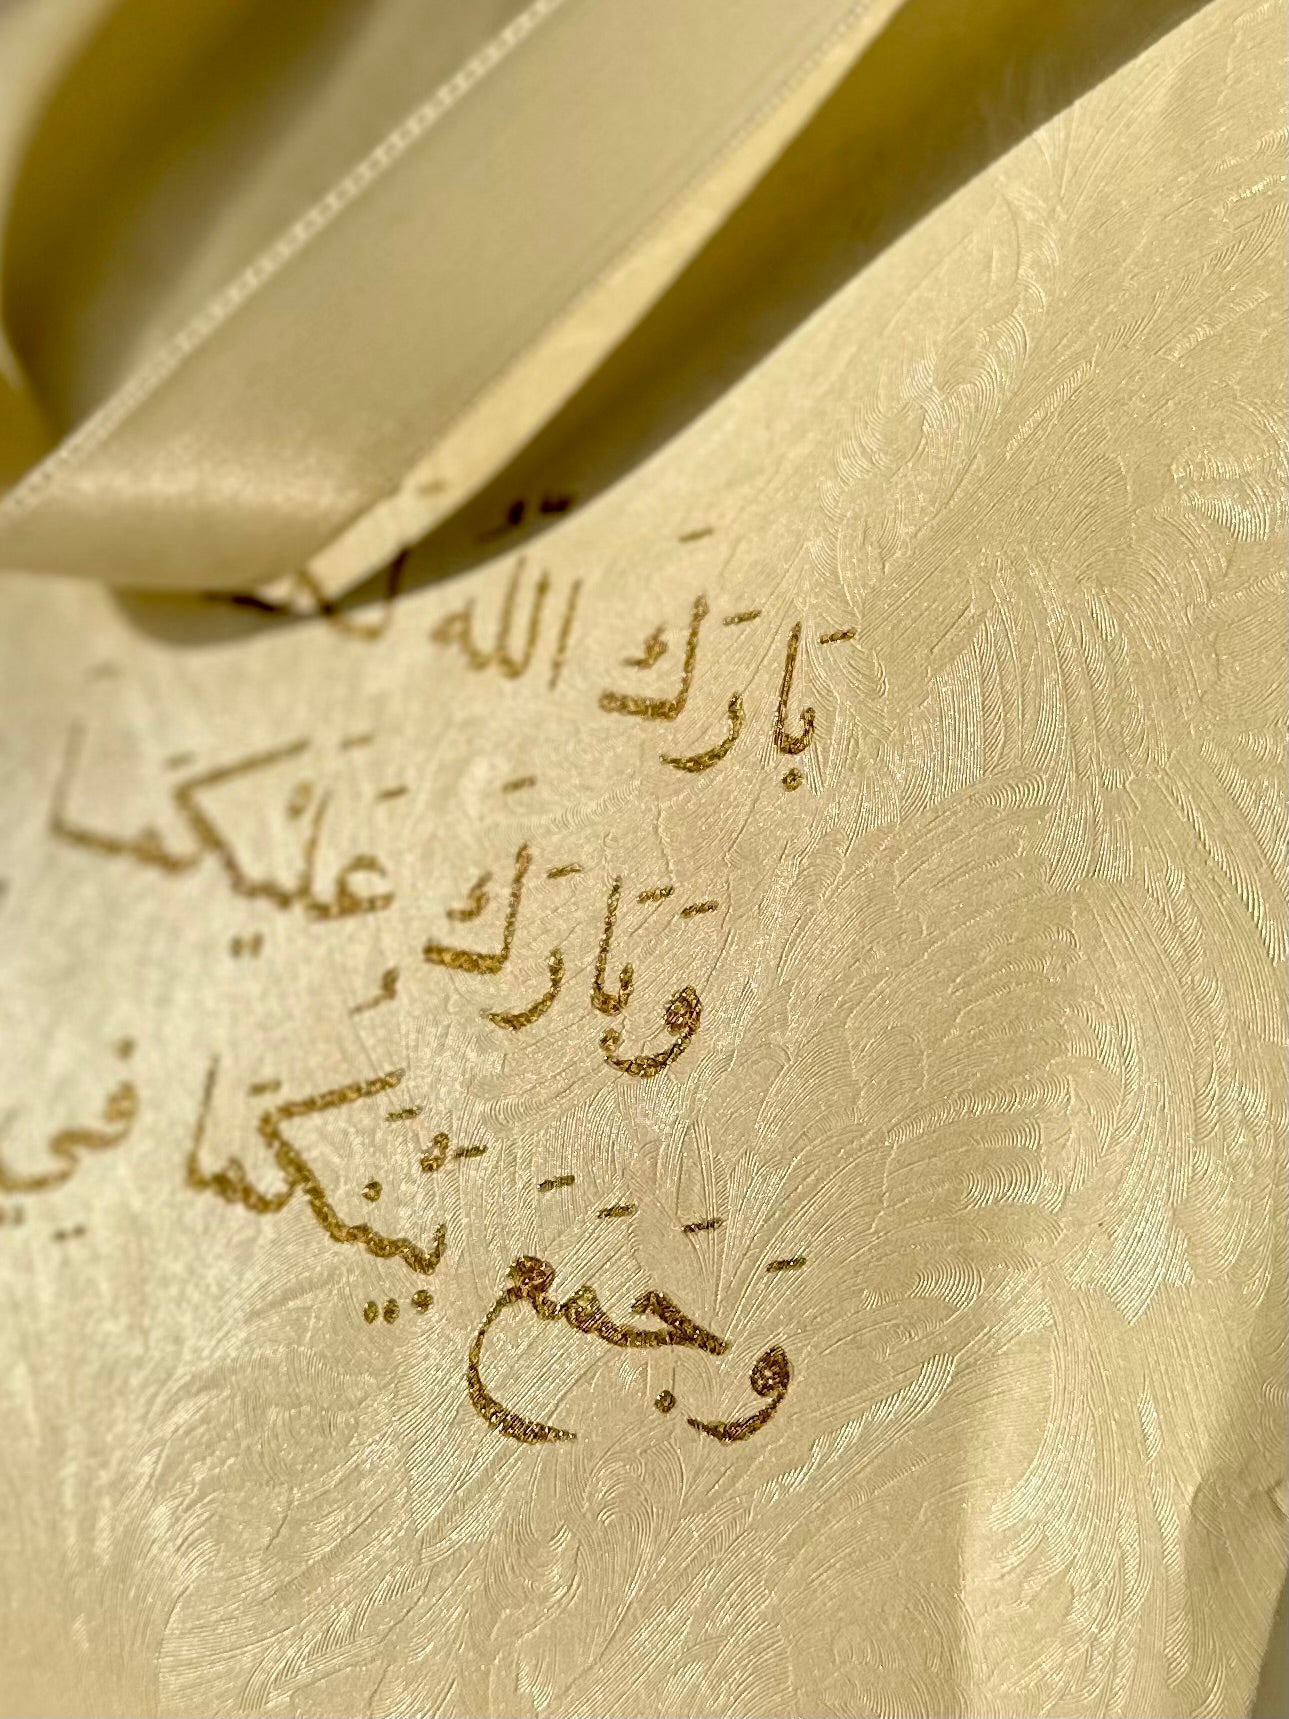 بَارَكَ الله
وَبَارَكَ عَلَيْكُمَا
وَجَمَعَ بَيْنَكُمَا في